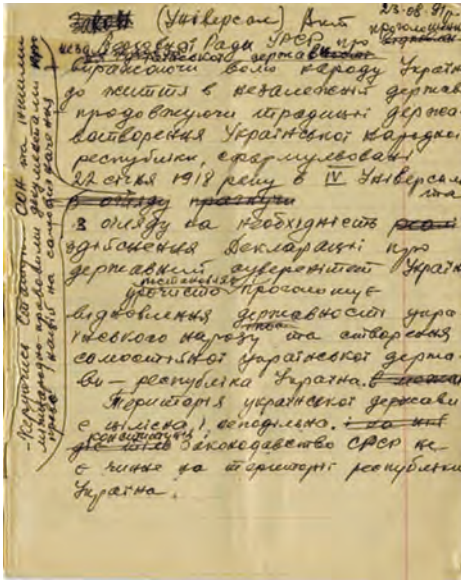 23-08-91р.
Закон (Універсал) Акт
проголошення
Верховної Ради УРСР про
незалежності української держави
виражаючи волю народу Україн
до життя в незалежній держав
продовжуючи традиції держа-
вотворення Української народної
республіки, сформульовані
22 січня 1918 року в IV Універсалі
та
з огляду прагнучи
з огляду на необхідність
здійснення Декларації про
державний суверенітет Україн
урочисто проголошує
відновлення державності укра
їнського народу та створення
самостійної української держа-
ви – республіка Україна.
Територія української держави
є цілісна, і неподільна. і на ній
конституція і
діє тільки Законодавство СРСР не
є чинне на території республіки
Україна.
-Керуючись Статутом ООН та іншими
міжнародно правовими документами про
право націй на самовизначення